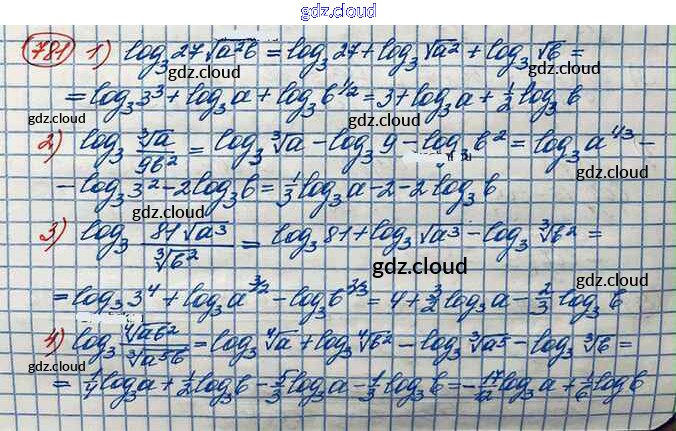 gdz.cloud
781 1) log₃27√a²b = log₃27 + log₃√a² + log₃√b =
gdz.cloud gdz.cloud
= log₃3³ + log₃a + log₃b^1/2 = 3 + log₃a + 1/2 log₃b
gdz.cloud gdz.cloud
2) log₃ ∛a/9b² = log₃∛a − log₃9 − log₃b² = log₃a^1/3 −
− log₃3² − 2log₃b = 1/3 log₃a − 2 − 2log₃b
gdz.cloud gdz.cloud
3) log₃ 81√a³/∛b² = log₃81 + log₃√a³ − log₃∛b² =
gdz.cloud gdz.cloud
= log₃3⁴ + log₃a^3/2 − log₃b^2/3 = 4 + 3/2 log₃a − 2/3 log₃b
gdz.cloud
4) log₃ ∜ab²/∛a⁵b = log₃∜a + log₃∜b² − log₃∛a⁵ − log₃∛b =
gdz.cloud gdz.cloud
= 1/4 log₃a + 1/2 log₃b − 5/3 log₃a − 1/3 log₃b = −17/12 log₃a + 1/6 log b
gdz.cloud